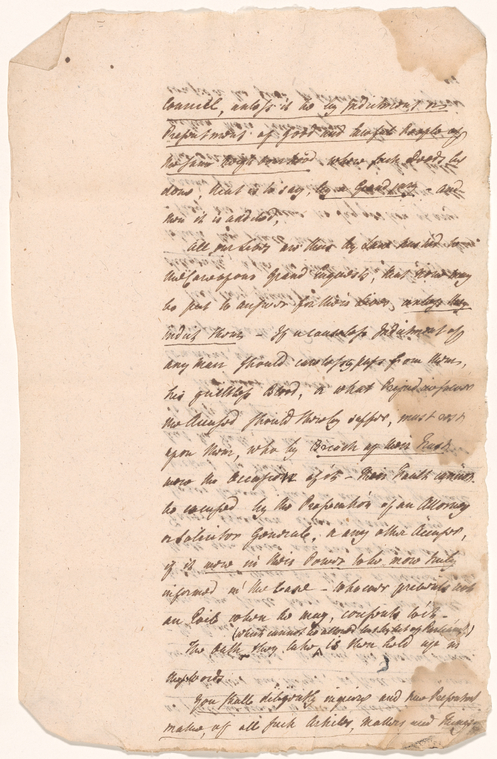 Council, unless it be by Indictment or
Presentment of good and lawful People of
the same neighbourhood where such Deeds be
done, that is to say, by a Grand jury - and
then it is added,
All our Lives are thus by Law trusted to
the Care of our Grand Inquests, that none may
be put to answer for their Lives, unless they
indict them - If a causeless Indictment of
any man should carelessly pass from them,
his guiltless Blood, or what Prejudice soever
the Accused should thereby suffer, must rest
upon them, who by Breach of their Trust
were the Occasion of it - Their Fault cannot
be excused by the Prosecution of an Attorney
or Solicitor General, or any other Accuser,
if it were in their Power to be more truly
informed in the Case - whoever prevents not
an Evil when he may, consents to it -
(which cannot be altered but by Act of Parliament)
The Oath they take, is then held up in
these Words
You shall diligently inquire and true Presentment
make, of all such Articles, Matters and Things